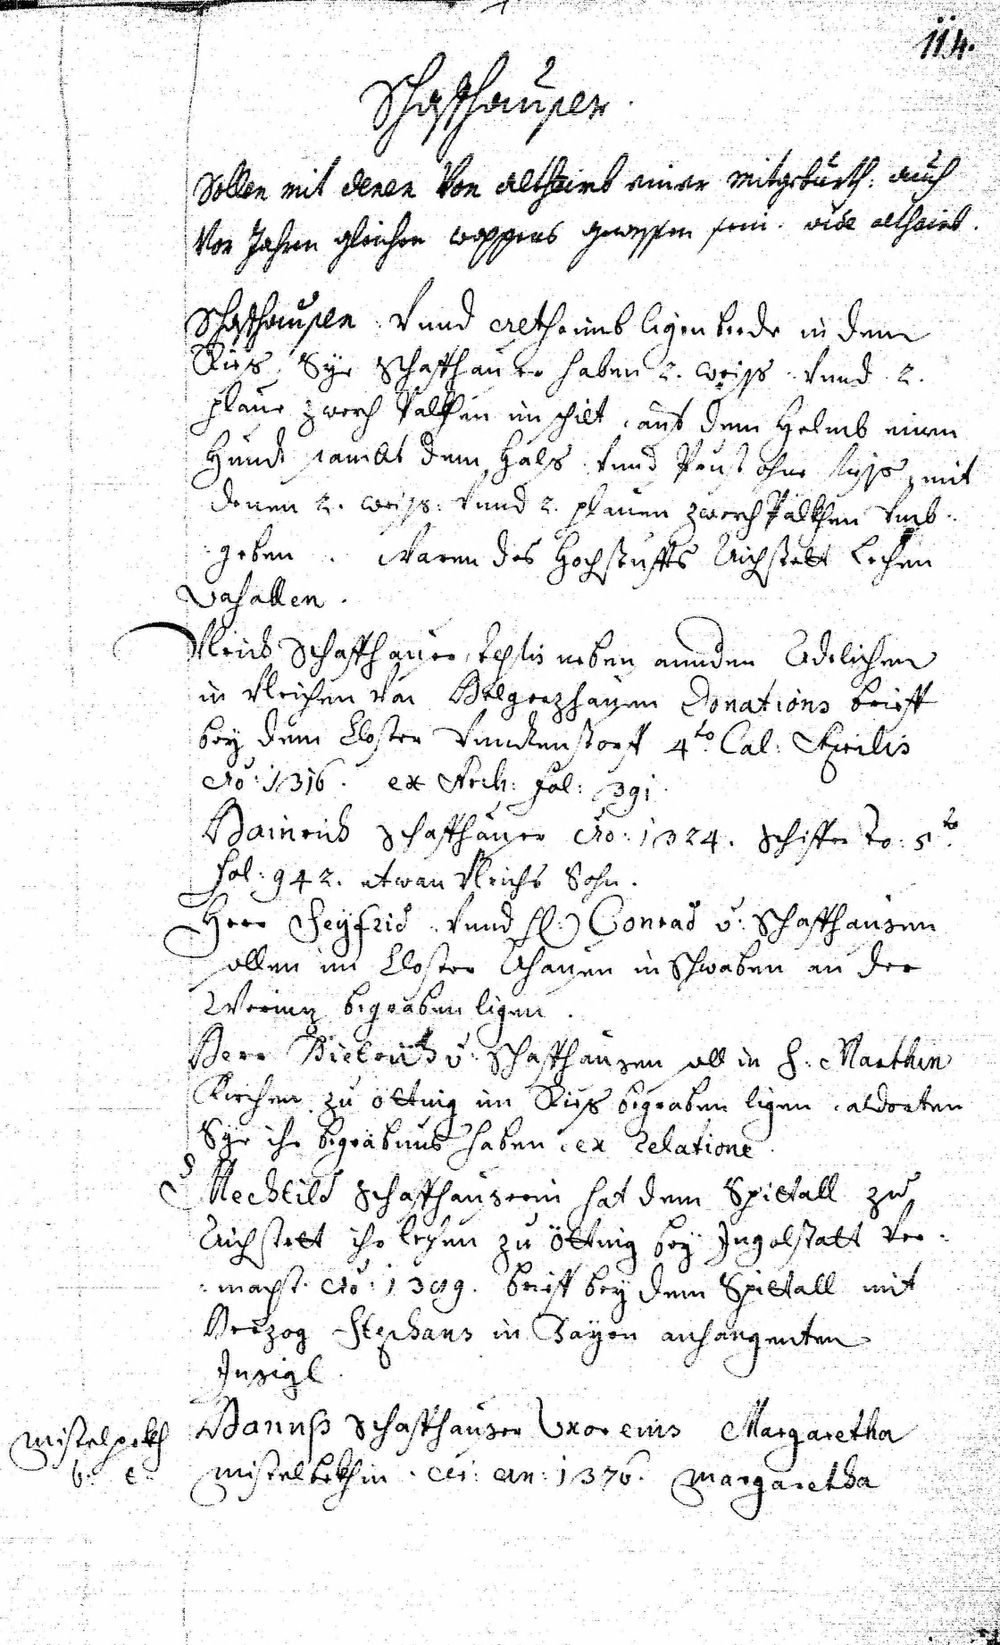 114.
Schaffhausen.
Sollen mit denen von Altheimb einer mitgebürth: auch
vor Jahren gleichen wappens gewessen sein. vide Altheimb.
Schaffhausen vnnd Altheimb ligen beede in dem
Riess, Sye Schaffhauser haben 2. weiss vnnd 2.
plaue zwerch Palkhen im schilt, auf dem Helmb einen
Hundt sambt dem Hals vnnd Prust ohne füess, mit
denen 2. weiss: vnnd 2. plauen zwerch Palkhen vmb:
:geben. Waren des Hochstiffts Aichstett Lechen
Vasallen.
Vlrich Schaffhauser, testis neben anndern Adelichen
in Vlrichen von donations brieff
bey dem Closter 4to Cal: Aprilis
Ao: 1316. ex Arch: fol: 391
Hainrich Schaffhauser Ao: 1324. To: 5to
fol: 942. etwan Vlrichs Sohn.
Herr Seyfrid vnnd H: Conrad v: Schaffhausen
sollen im Closter Ahausen in Schwaben an der
Werniz begraben ligen.
Herr v: Schaffhausen soll in S: Marthin
Kirchen zu Öttnig im Riess begraben ligen, aldorten
Sye ihr begräbnus haben. ex relatione.
Mechtild Schaffhauserin hat dem Spittall zu
Aichstett ihr lechen zu Öttnig bey Ingolstatt ver:
:macht. Ao: 1309. brieff bey dem Spittall mit
Herzog Stephans in Bayrn anhangenten
Insigl.
Hannss Schaffhauser Vxor eius Margaretha
mistelbekhin. an: 1376. margaretha
Mistelpekh